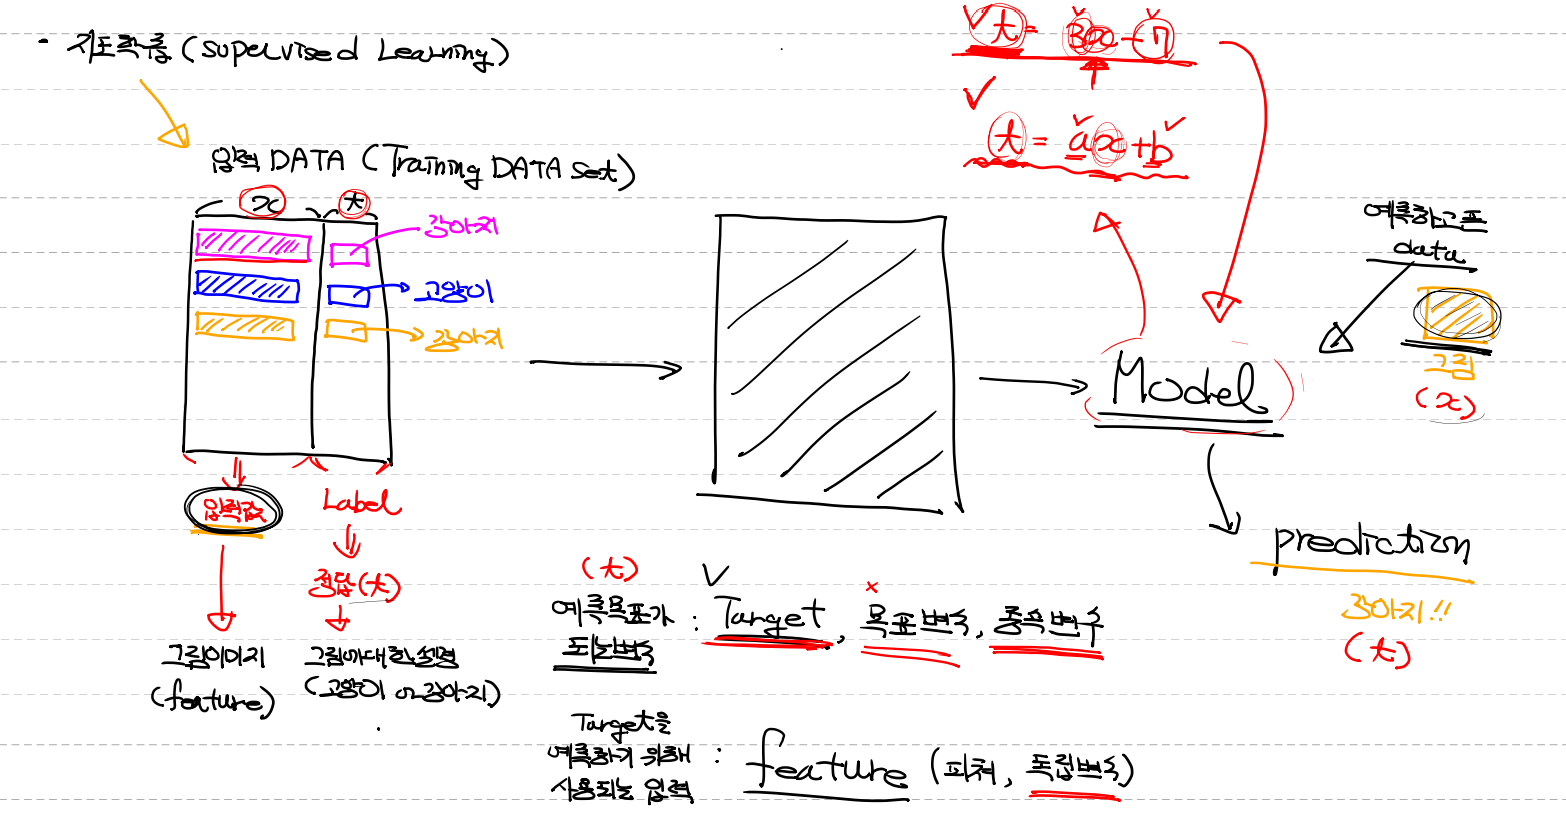 · 지도학습 (Supervised Learning)
입력 DATA (Training DATA set)
x
t
강아지
고양이
강아지
입력값
Label
정답(t)
그림이미지
(feature)
그림에대한설명
(고양이 or 강아지)
t = 3x - 7
t = ax + b
Model
예측하고픈
data
그림
(x)
prediction
강아지!!
(t)
(t)
예측목표가
되는변수
: Target, 목표변수, 종속변수
Target을
예측하기 위해
사용되는 입력
: feature (피처, 독립변수)